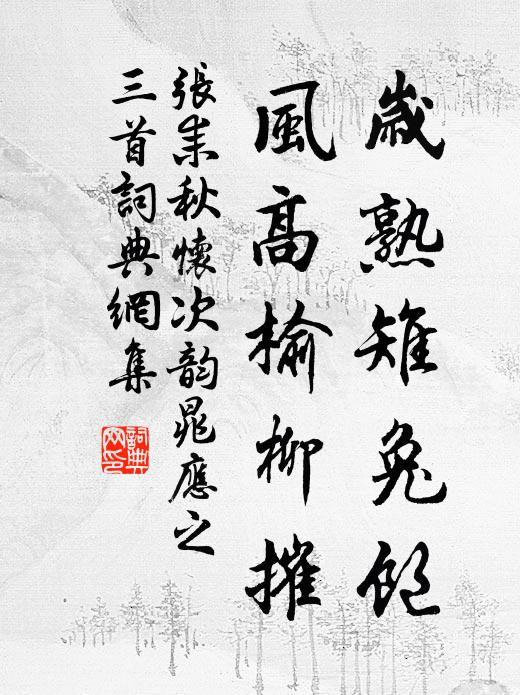 歲熟雉兔飽
風高榆柳摧
張耒秋懷次韵晁應之
三首詞典網集
詞典網印